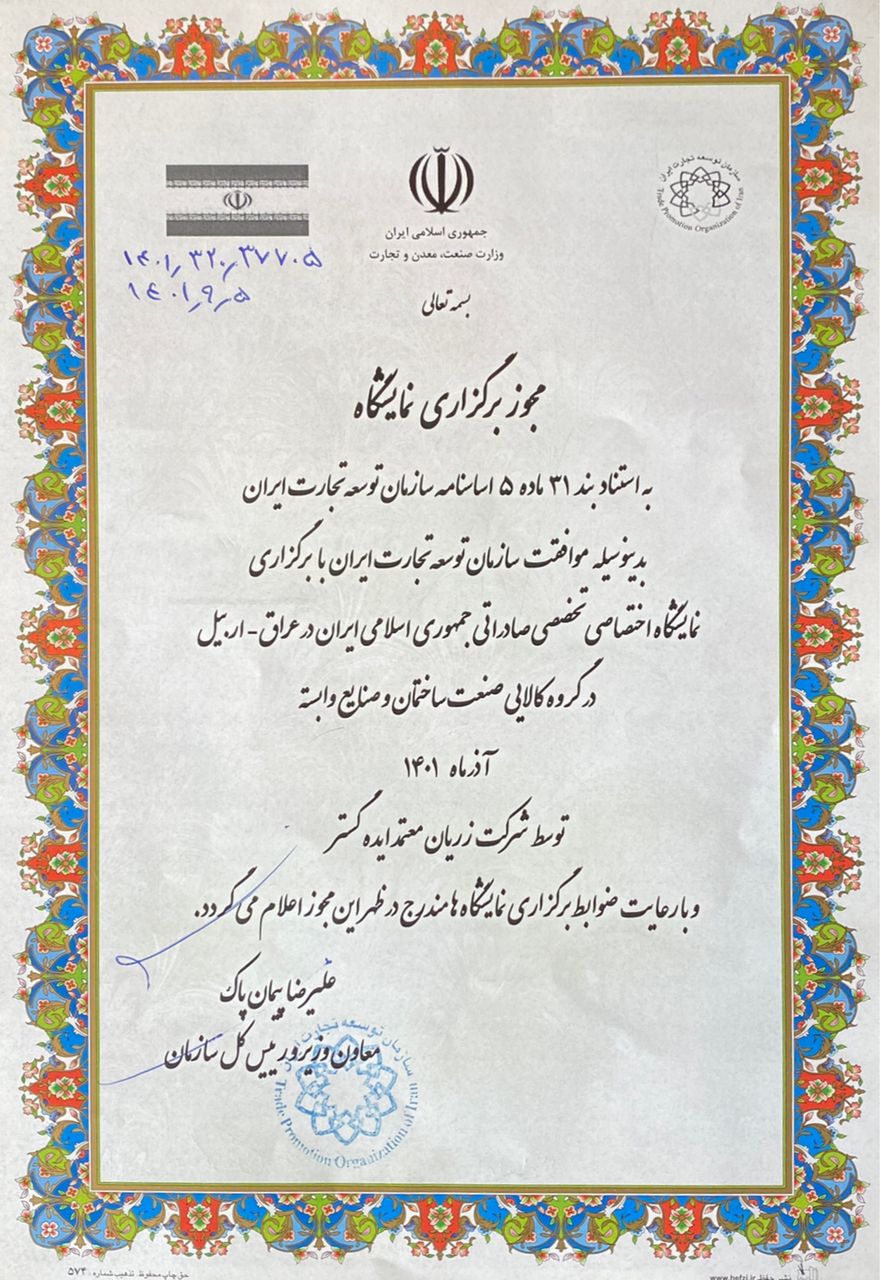 سازمان توسعه تجارت ایران
Trade Promotion Organization of Iran
جمهوری اسلامی ایران
وزارت صنعت، معدن و تجارت
۱۴۰۱٫۳۲۰٫۳۷۷۰۵
۱۴۰۱٫۹٫۵
بسمه تعالی
مجوز برگزاری نمایشگاه
به استناد بند ۳۱ ماده ۵ اساسنامه سازمان توسعه تجارت ایران
بدینوسیله موافقت سازمان توسعه تجارت ایران با برگزاری
نمایشگاه اختصاصی تخصصی صادراتی جمهوری اسلامی ایران در عراق - اربیل
در گروه کالایی صنعت ساختمان و صنایع وابسته
آذر ماه ۱۴۰۱
توسط شرکت زریان معتمد ایده گستر
و با رعایت ضوابط برگزاری نمایشگاه ها مندرج در ظهر این مجوز اعلام می گردد.
علیرضا پیمان پاک
معاون وزیر و رییس کل سازمان
سازمان توسعه تجارت ایران
Trade Promotion Organization of Iran
حق چاپ محفوظ. تذهیب شماره: ۵۷۴
نشر حفظی www.hefzi.ir